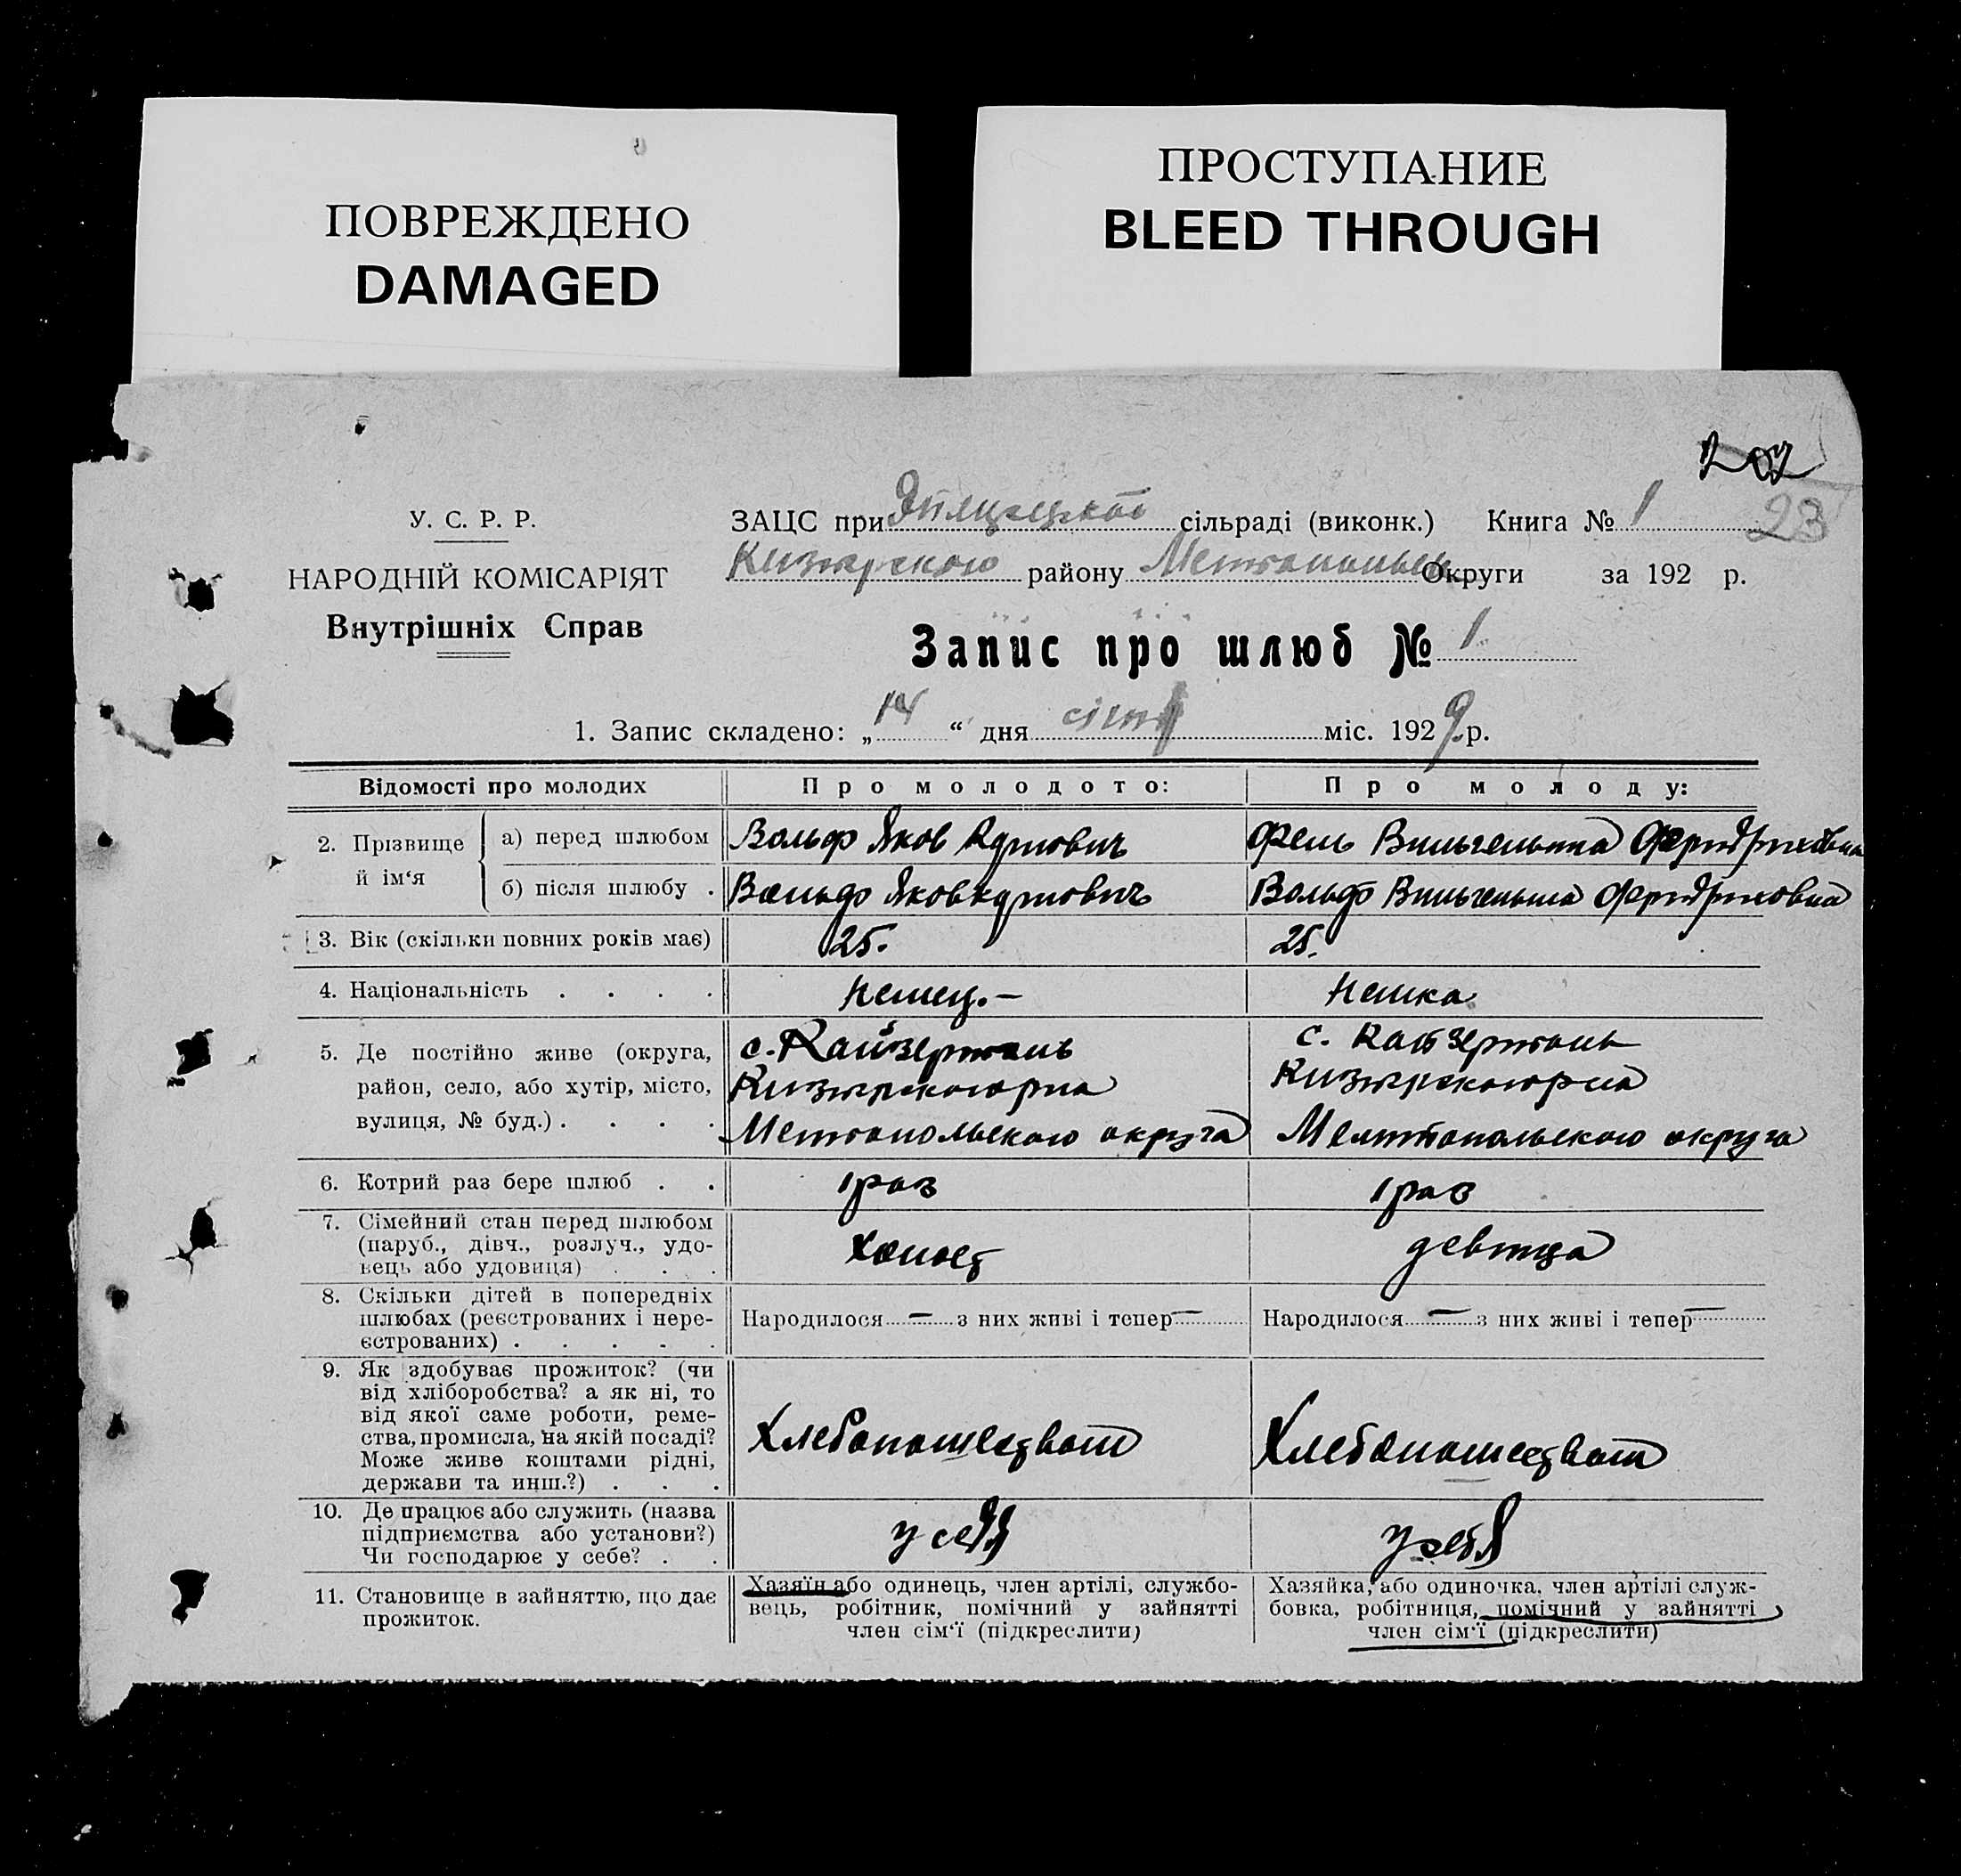 ПОВРЕЖДЕНО
DAMAGED
ПРОСТУПАНИЕ
BLEED THROUGH
202
23
У. С. Р. Р.
НАРОДНІЙ КОМІСАРІЯТ
Внутрішніх Справ
ЗАЦС при сільраді (виконк.) Книга № 1
району Округи за 192 р.
Запис про шлюб № 1
1. Запис складено: „14“ дня міс. 1929 р.
Відомості про молодих Про молодого: Про молоду:
2. Прізвище й ім‘я
а) перед шлюбом Вольф Яков Фель Вильгельмина
б) після шлюбу . Вольф Яков Вольф Вильгельмина
3. Вік (скільки повних років має) 25. 25.
4. Національність . . . . Немец.— Немка
5. Де постійно живе (округа, район, село, або хутір, місто, вулиця, № буд.) . . . .
с. Кайзерталь
Мелитопольского округа
с. Кайзерталь
Мелитопольского округа
6. Котрий раз бере шлюб . . 1 раз 1 раз
7. Сімейний стан перед шлюбом
(паруб., дівч., розлуч., удо-
вець або удовиця) . . . Холост девица
8. Скільки дітей в попередніх
шлюбах (реєстрованих і нере-
єстрованих) . . . . .
Народилося — з них живі і тепер —
Народилося — з них живі і тепер —
9. Як здобуває прожиток? (чи
від хліборобства? а як ні, то
від якої саме роботи, реме-
ства, промисла, на якій посаді?
Може живе коштами рідні,
держави та инш.?) . . .
Хлебопашеством
Хлебопашеством
10. Де працює або служить (назва
підприємства або установи?)
Чи господарює у себе? . .
у себя
у себя
11. Становище в зайняттю, що дає
прожиток.
Хазяїн або одинець, член артілі, службо-
вець, робітник, помічний у зайнятті
член сім‘ї (підкреслити)
Хазяйка, або одиночка, член артілі служ-
бовка, робітниця, помічний у зайнятті
член сім‘ї (підкреслити)